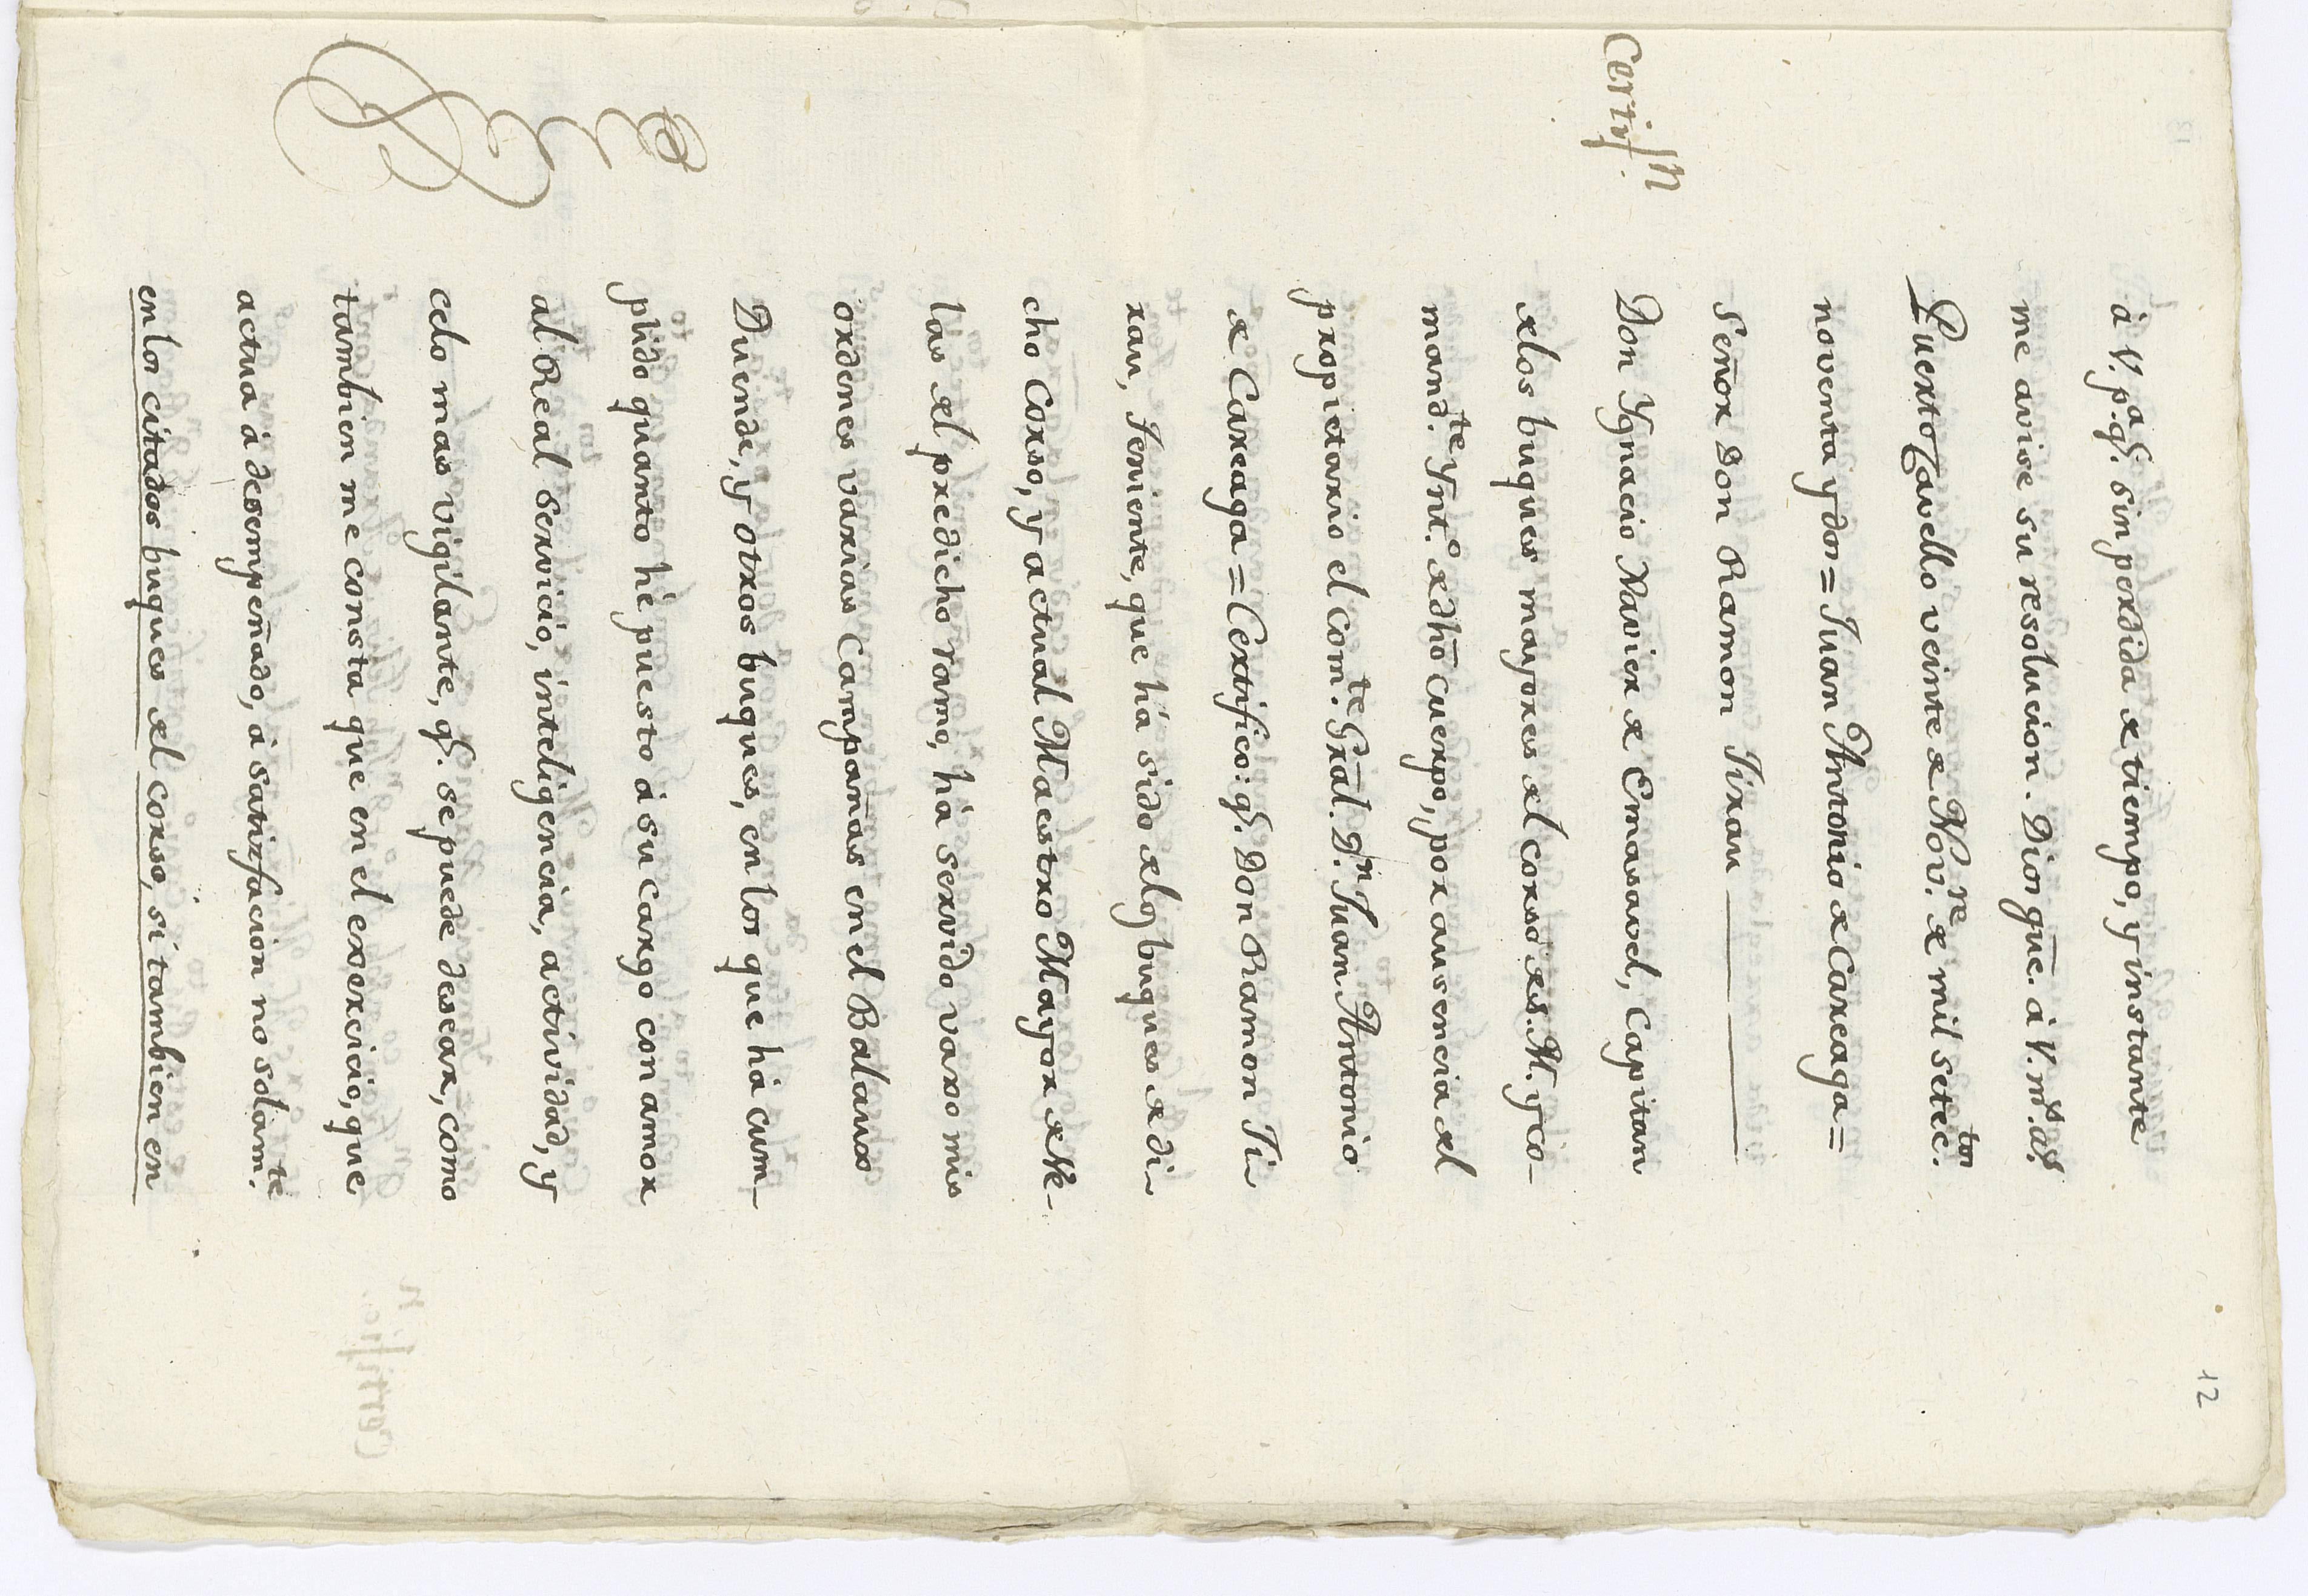 12
à V. p.ª q.ᵉ sin perdida de tiempo, y instante
me avise su resolucion. Dios gūe. à V. m.ˢ a.ˢ
Puerto Cavello veinte de Nov.ʳᵉ de mil setec.ᵗᵒˢ
noventa y dos = Juan Antonio de Careaga =
Señor Don Ramon Tirau
Certif.ⁿ
Don Ygnacio Xavier de Emasavel, Capitan
de los buques mayores del corso de S. M. y Co-
mand.ᵗᵉ Ynt.º de dh̄o cuerpo, por ausencia del
propietario el Com.ᵗᵉ Gr̄al. D.ⁿ Juan Antonio
de Careaga = Certifico: q.ᵉ Don Ramon Ti-
rau, Teniente, que há sido de los buques de di-
cho Corso, y actual Maestro Mayor de Ve-
las del predicho ramo, há servido vaxo mis
ordenes varias Campañas en el Balaus
Duende, y otros buques, en los que há cum-
plido quanto hé puesto á su cargo con amor
al Real servicio, inteligencia, actividad, y
celo mas vigilante, q.ᵉ se puede desear, como
tambien me consta que en el exercicio, que
actua á desempeñado, á satisfacion no solam.ᵗᵉ
en los citados buques del corso, si tambien en